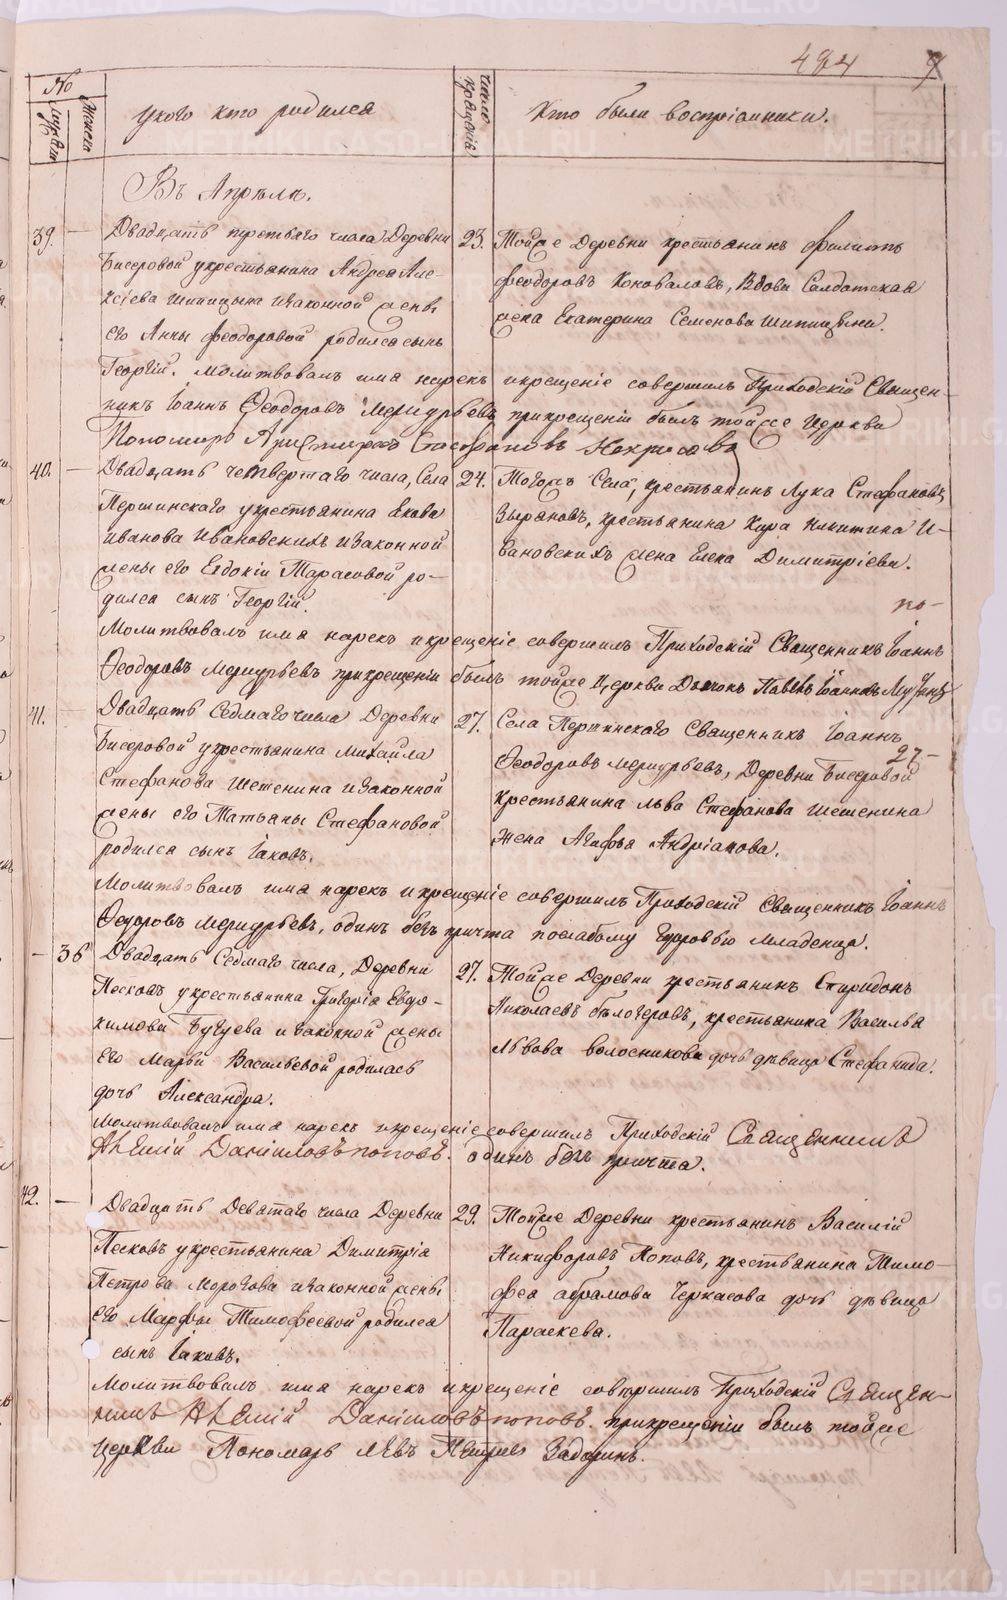 484
№
Мужеск
Женска
У кого кто родился
Число крещенія
Кто были воспріемники.
Въ Апрѣлѣ.
39. Двадцать третьяго числа Деревни
Бисеровой у крестьянина Андрея Але-
ксіева Шипицына и законной жены
его Анны Феодоровой родился сынъ
Георгій.
23. Тойже Деревни крестьянинъ Филиппъ
Феодоровъ Коноваловъ, Вдова Солдатская
жена Екатерина Семенова Шипицына.
Молитвовалъ имя нарекъ и крещеніе совершилъ Приходскій Священ-
никъ Іоаннъ Ѳеодоровъ Меркурьевъ при крещеніи былъ тойже Церкви
Пономарь Стефановъ Некрасовъ
40. Двадцать четвертаго числа, Села
Першинскаго у крестьянина Якова
Иванова Ивановскихъ и законной
жены его Евдокіи Тарасовой ро-
дился сынъ Георгій.
24. Тогожъ Села, крестьянинъ Лука Стефановъ
Зыряновъ, крестьянина Кира Никитина И-
вановскихъ жена Елена Димитріева.
по-
Молитвовалъ имя нарекъ и крещеніе совершилъ Приходскій Священникъ Іоаннъ
Ѳеодоровъ Меркурьевъ при крещеніи былъ тойже Церкви Дьячокъ Павелъ Іоанновъ
41. Двадцать Седмаго числа Деревни
Бисеровой у крестьянина Михайла
Стефанова Шетенина и законной
жены его Татьяны Стефановой
родился сынъ Іаковъ.
27. Села Першинскаго Священникъ Іоаннъ
27-
Ѳеодоровъ Меркурьевъ, Деревни Бисеровой
крестьянина Льва Стефанова Шетенина
жена Агафья Андріанова.
Молитвовалъ имя нарекъ и крещеніе совершилъ Приходскій Священникъ Іоаннъ
Ѳедоровъ Меркурьевъ, одинъ безъ причта послабому здоровью младенца.
36 Двадцать Седмаго числа, Деревни
Песковъ у крестьянина Григорія Евдо-
кимова и законной жены
его Марьи Васильевой родилась
дочь Александра.
27. Тойже Деревни крестьянинъ Спиридонъ
Николаевъ Бѣлозеровъ, крестьянина Василья
Львова Волосникова дочь дѣвица Стефанида.
Молитвовалъ имя нарекъ и крещеніе совершилъ Приходскій Священникъ
Даніиловъ Поповъ. одинъ безъ причта.
42. Двадцать Девятаго числа Деревни
Песковъ у крестьянина Димитрія
Петрова Морозова и законной жены
его Марфы Тимофеевой родился
сынъ Іаковъ.
29. Тойже Деревни крестьянинъ Василій
Никифоровъ Поповъ, крестьянина Тимо-
фея Абрамова Черкасова дочь дѣвица
Параскева.
Молитвовалъ имя нарекъ и крещеніе совершилъ Приходскій Священ-
никъ Даніиловъ Поповъ. при крещеніи былъ тойже
Церкви Пономарь Левъ Петровъ
METRIKI.GASO-URAL.RU